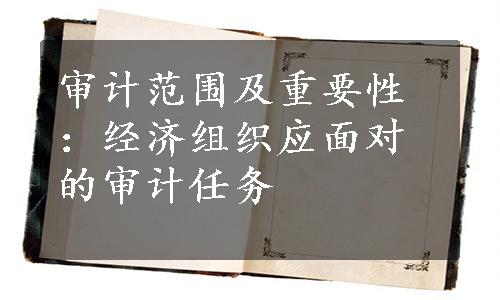 审计范围及重要性
：经济组织应面对
的审计任务